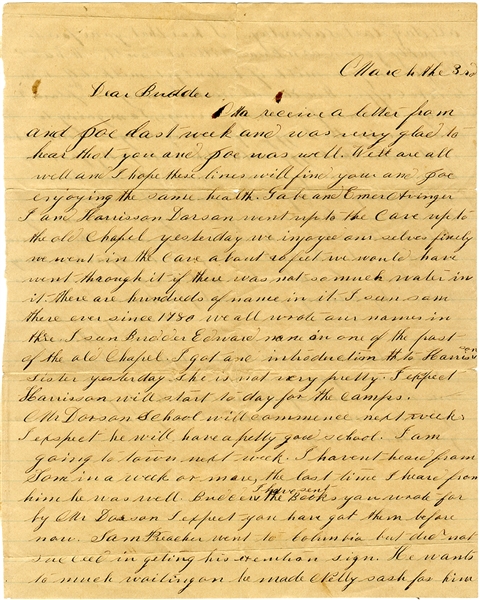 March the 3rd
Dear Budder
Ma receive a letter from
and poe last week and was very glad to
hear that you and poe was well. We are all
well and I hope these lines will find you and poe
enjoying the same health. Gabe and Emert
I am Harrisson Dorson went up to the Cave up to
the old Chapel yesterday we injoyed our selves finely
we went in the Cave about 20 feet we would have
went through it if there was not so much water in
it. there are hundreds of name in it. I seen sam
there ever since 1780 we all wrote our names in
there. I seen Budder Edward name on one of the post
of the old Chapel. I got and introduction to Harrisson
sister yesterday she is not very pretty. I expect
Harrisson will start to day for the camps.
Mr Dorson School will commence next week.
I expect he will have a petty good school. I am
going to town next week. I havent heare from
Tom in a week or more, the last time I heare from
him he was well. Budder I have sent the Books you wrote for
by Mr Dorson I expect you have got them before
now. Sam Preacher went to Columbia but did not
succeed in geting his exemtion sign. He wants
to much waiting on he made Nilly sash for him